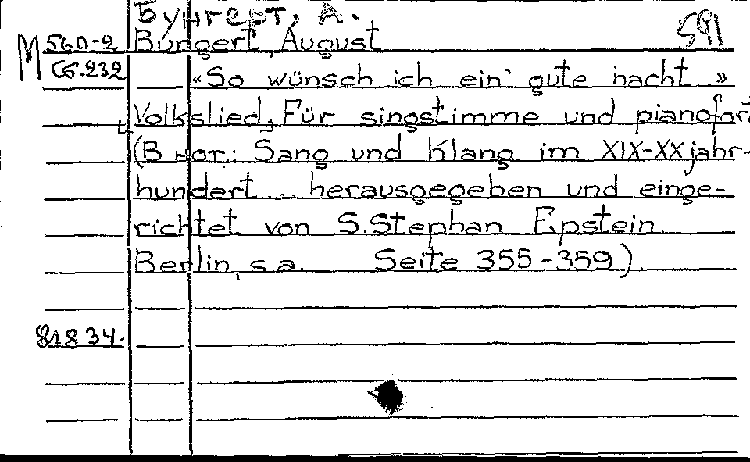 Бунгерт, А.
591
М 560-2 Bungert, August
Сб.232 «So wünsch ich ein' gute nacht»
[Volkslied] Für singstimme und pianofort
(В ког.: Sang und Klang im XIX-XX jahr-
hundert... herausgegeben und einge-
richtet von S. Stephan Epstein
Berlin, s.a. Seite 355-359)
81834.